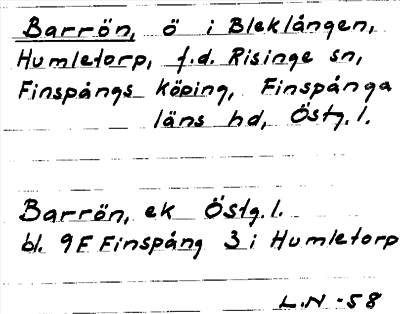 Barrön, ö i Bleklången,
Humletorp, f.d. Risinge sn,
Finspångs köping, Finspånga
läns hd, Östg.l.
Barrön, ek Östg.l.
bl. 9F Finspång 3 i Humletorp
L.N -58